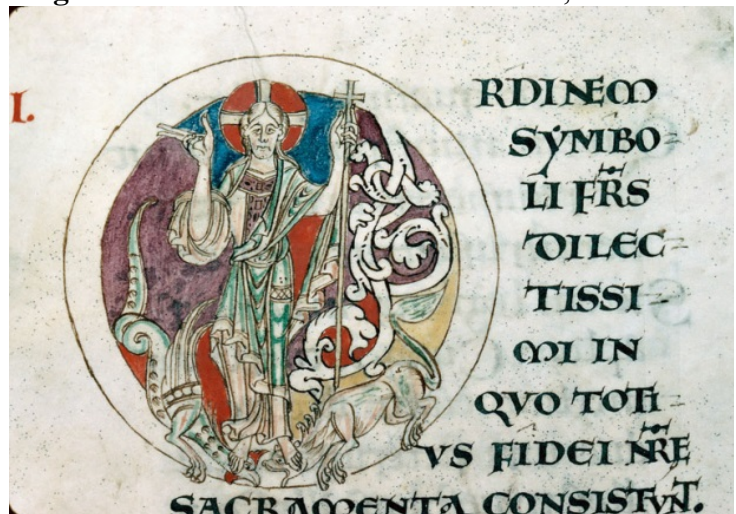 I.
RDINEM
SYMBO-
LI FRS
DILEC-
TISSI-
MI IN
QVO TOTI-
VS FIDEI NRE
SACRAMENTA CONSISTVNT.